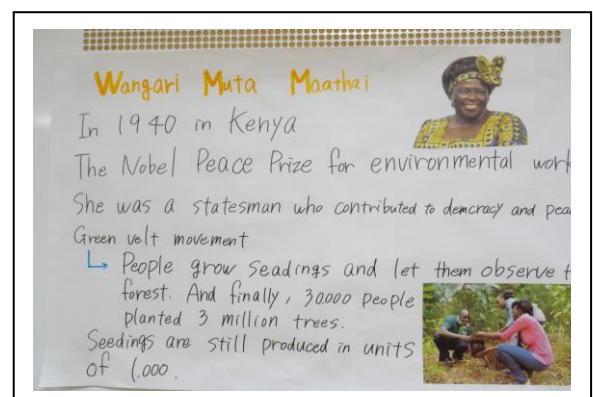 Wangari Muta Maathai
In 1940 in Kenya
The Nobel Peace Prize for environmental work
She was a statesman who contributed to demcracy and pea
Green velt movement
People grow seadings and let them observe t
forest. And finally, 30000 people
planted 3 million trees.
Seedings are still produced in units
of 1.000.